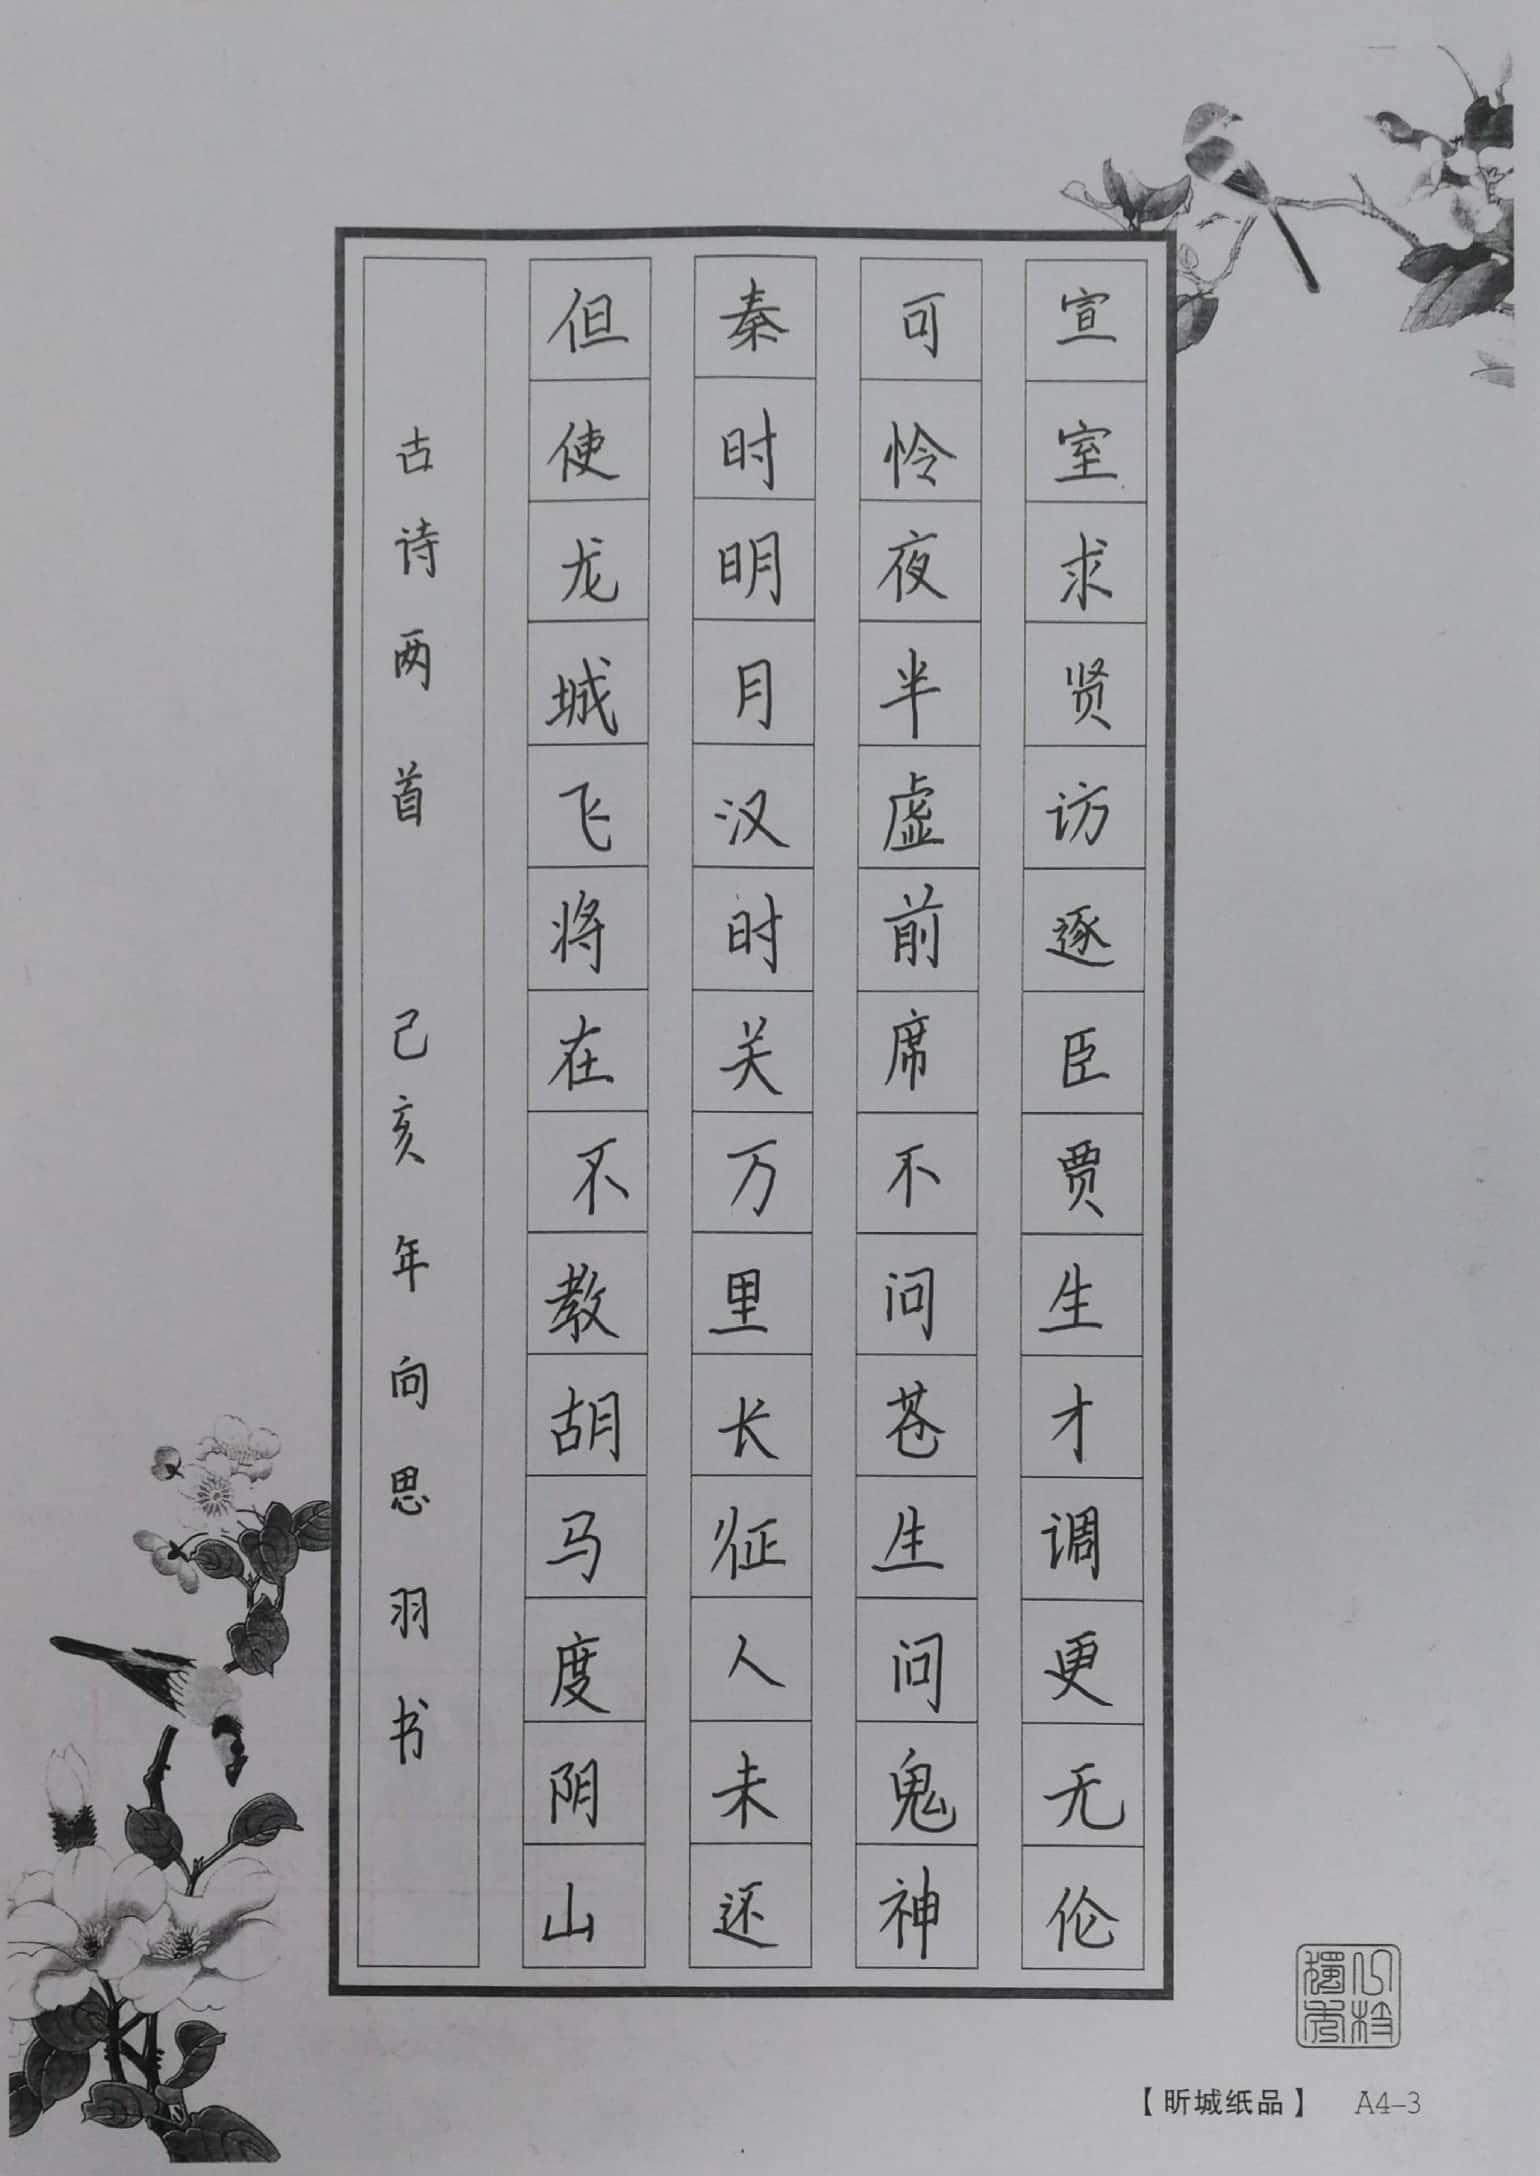 宣室求贤访逐臣贾生才调更无伦
可怜夜半虚前席不问苍生问鬼神
秦时明月汉时关万里长征人未还
但使龙城飞将在不教胡马度阴山
古诗两首 己亥年向思羽书
【昕城纸品】 A4-3